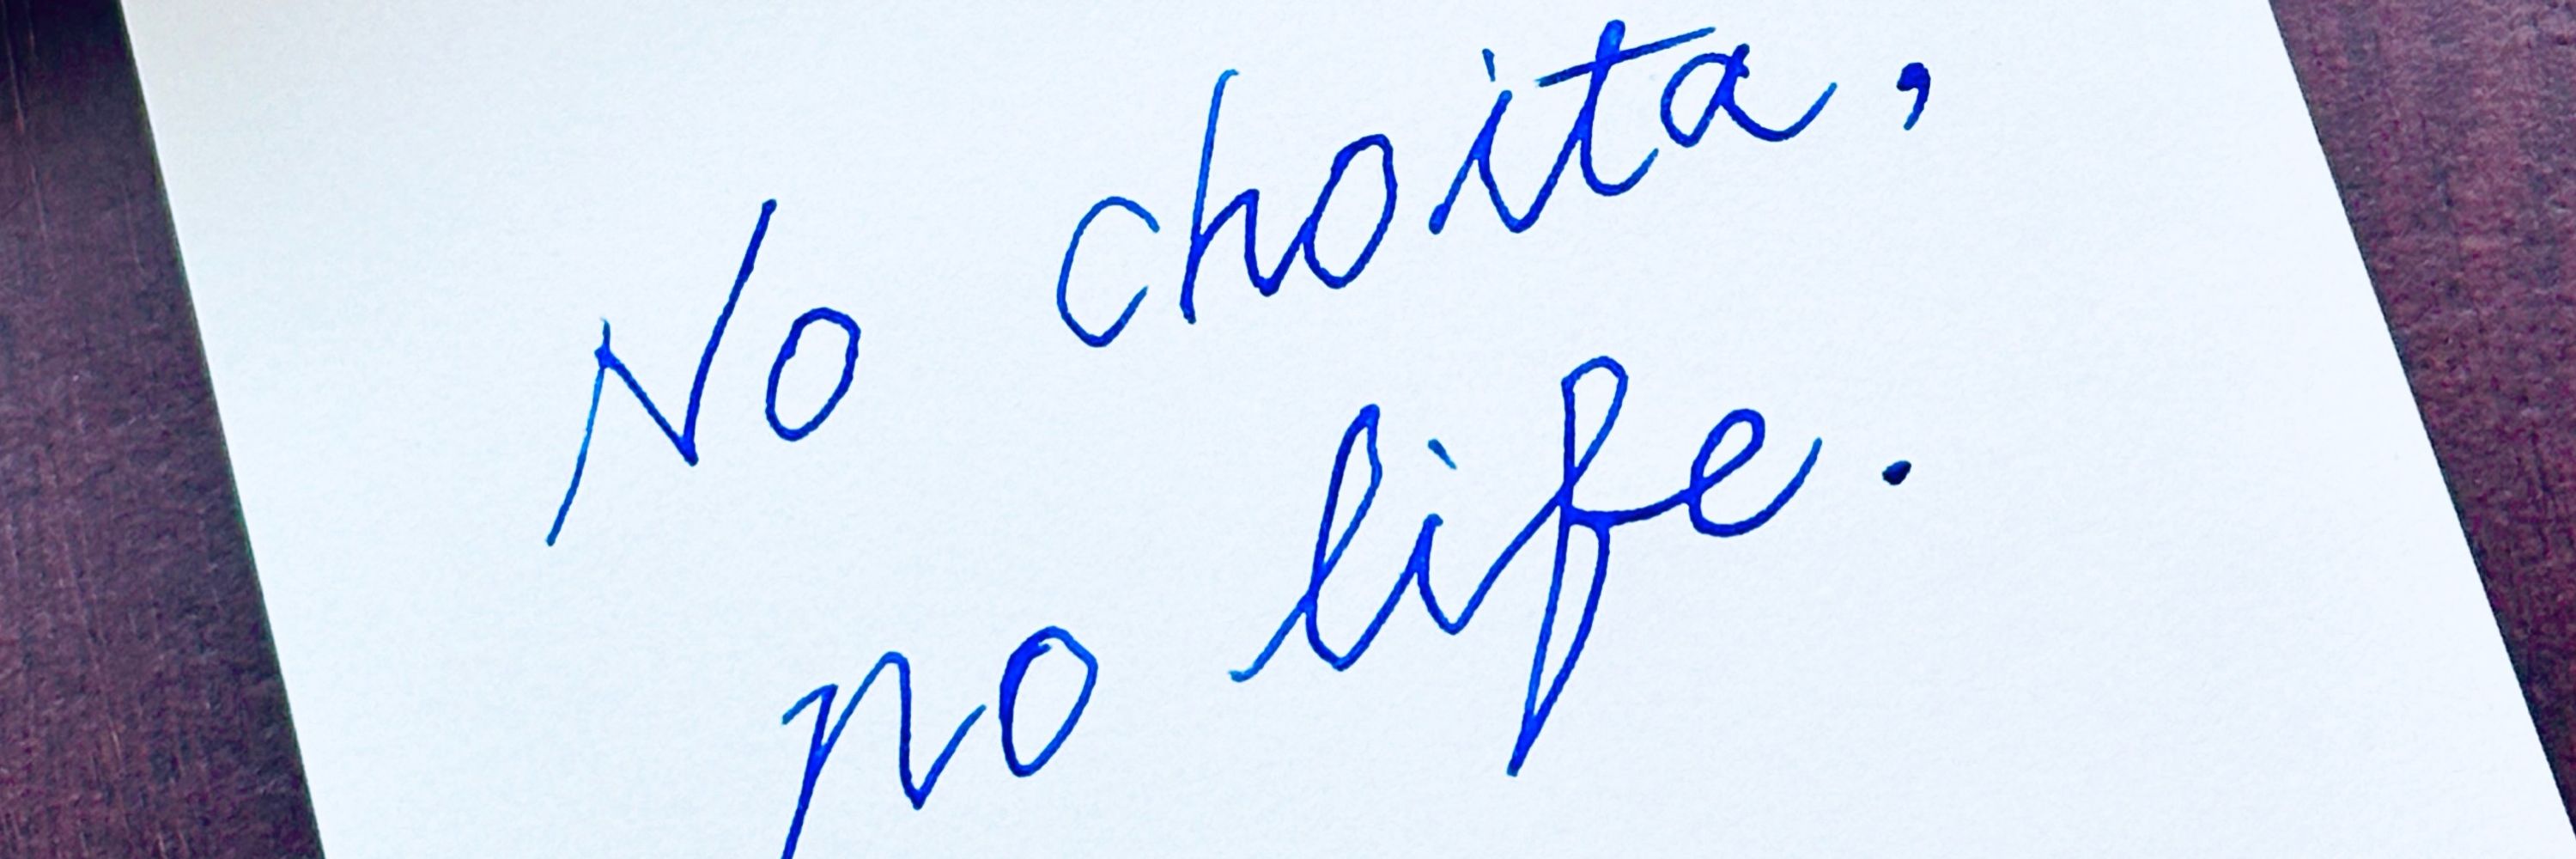 No choita,
no life.